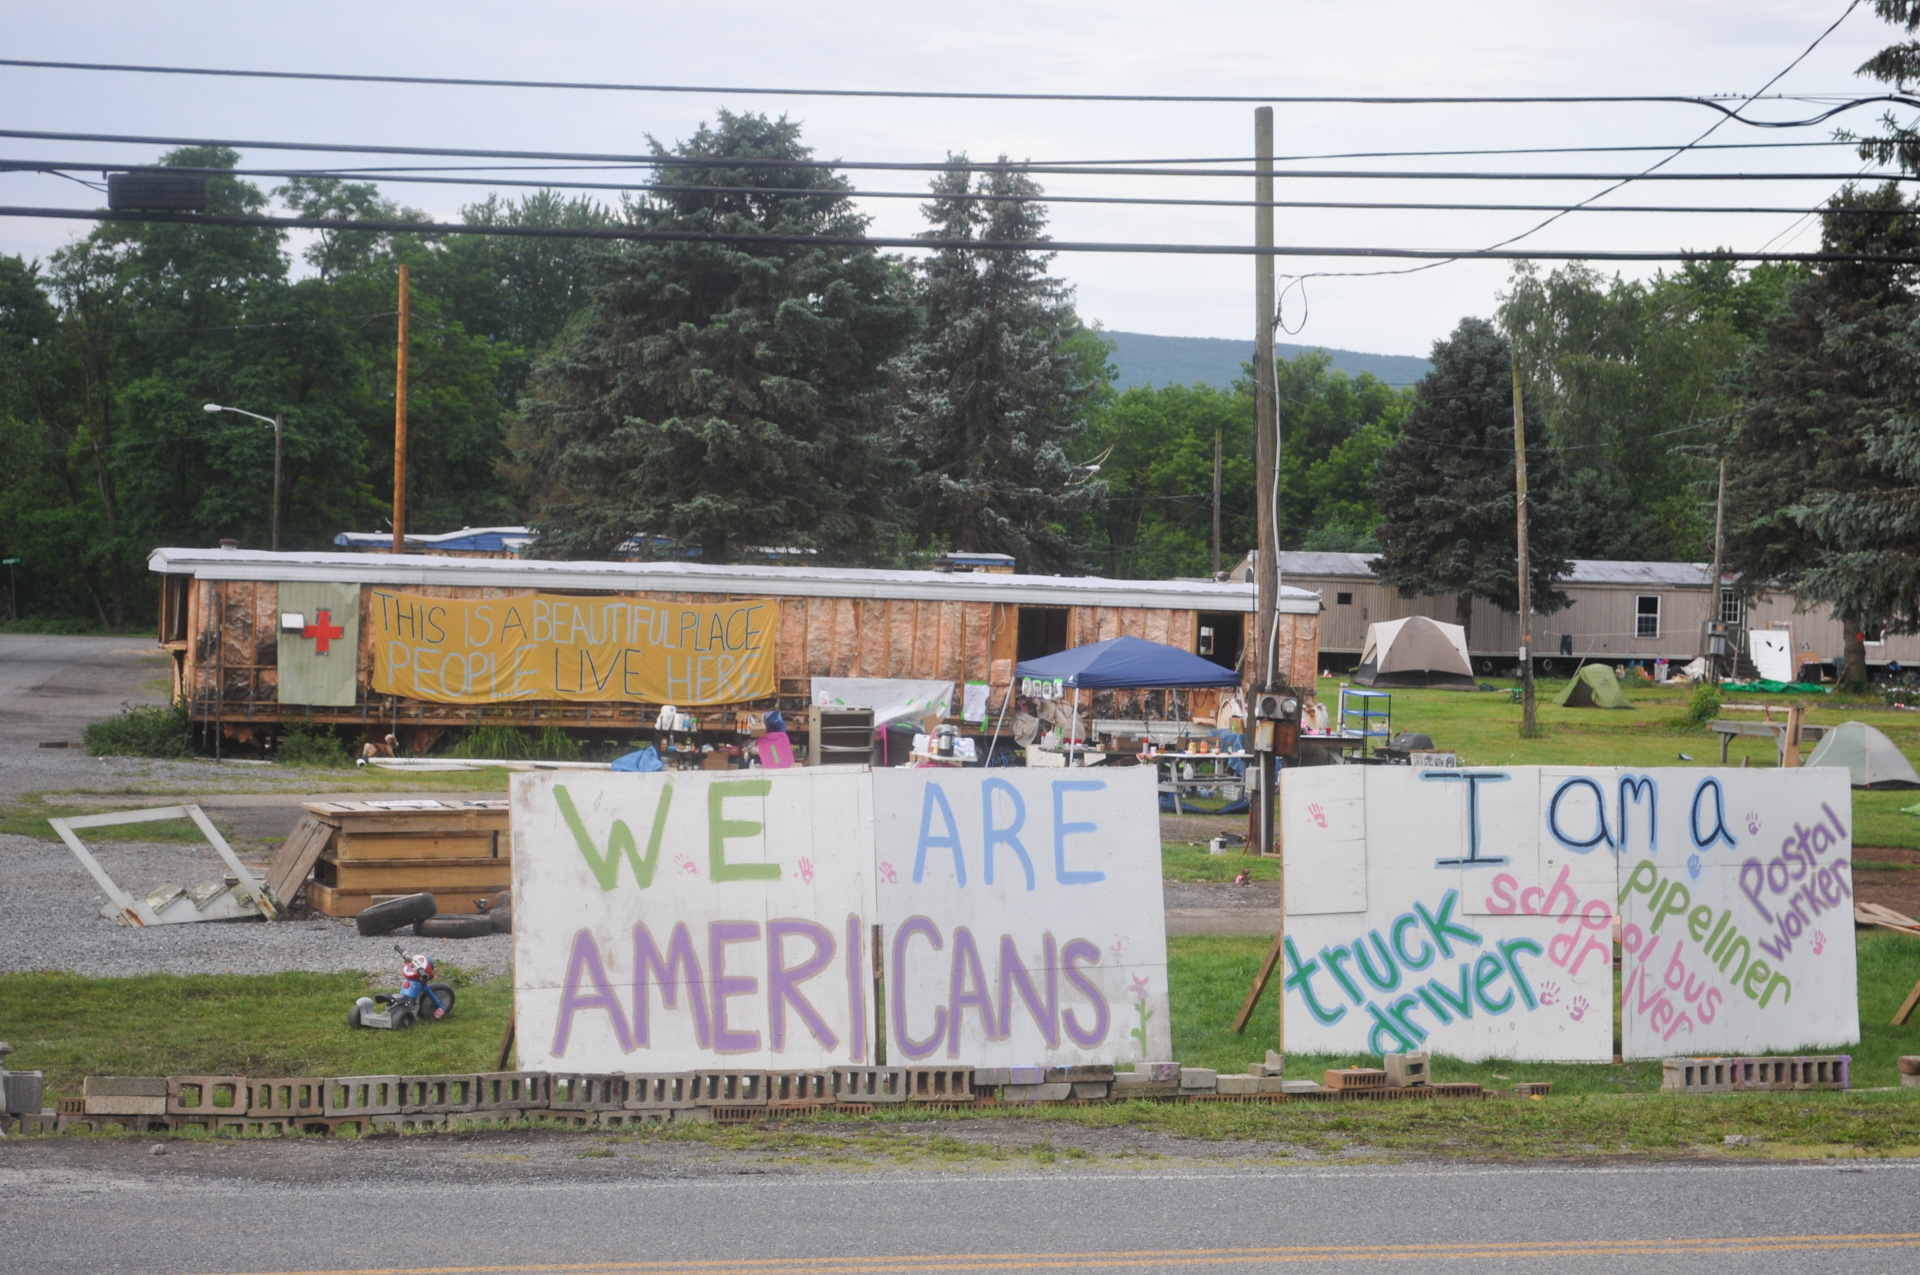 THIS IS A BEAUTIFUL PLACE
PEOPLE LIVE HERE
WE ARE
AMERICANS
I am a
truck
driver
school bus
driver
pipeliner
Postal
Worker